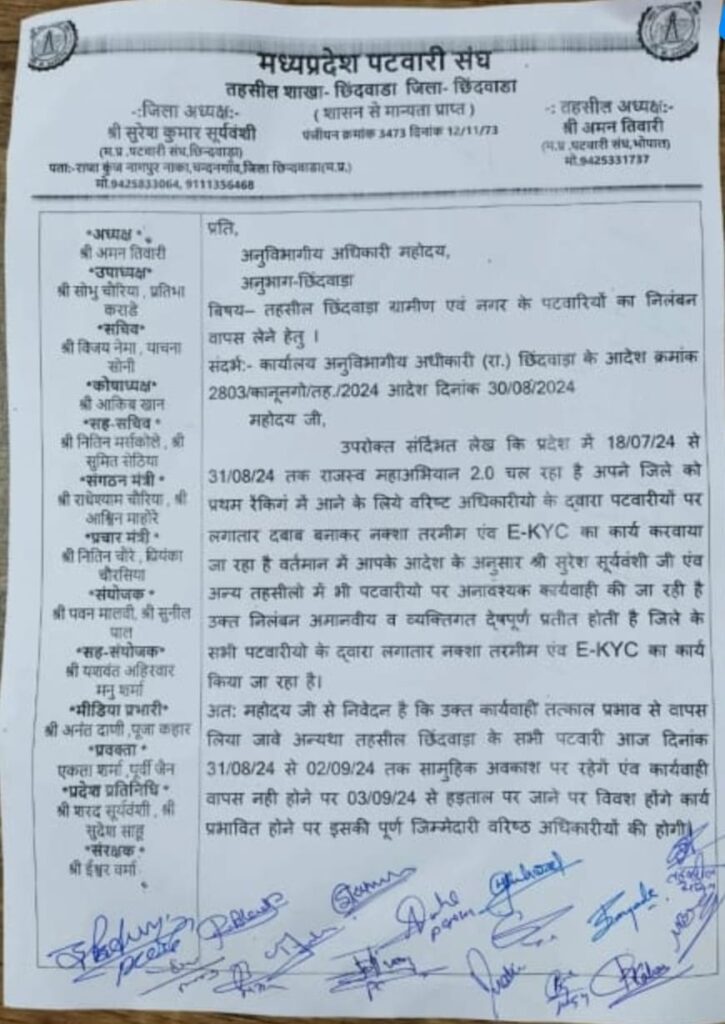 मध्यप्रदेश पटवारी संघ
तहसील शाखा- छिंदवाडा जिला- छिंदवाडा
( शासन से मान्यता प्राप्त )
पंजीयन क्रमांक 3473 दिनांक 12/11/73
-:जिला अध्यक्ष:-
श्री सुरेश कुमार सूर्यवंशी
(म.प्र.,पटवारी संघ,छिन्दवाड़ा)
पता:- राजा कुंज नागपुर नाका,चन्दनगाँव,जिला छिन्दवाडा(म.प्र.)
मो.9425833064, 9111356468
-: तहसील अध्यक्ष:-
श्री अमन तिवारी
(म.प्र.,पटवारी संघ,भोपाल)
मो.9425331737
*अध्यक्ष *
श्री अमन तिवारी
*उपाध्यक्ष*
श्री सोभु चौरिया , प्रतिभा
कराडे
*सचिव*
श्री विजय नेमा , याचना
सोनी
*कोषाध्यक्ष*
श्री आकिब खान
*सह-सचिव *
श्री नितिन मर्सकोले , श्री
सुमित सेठिया
*संगठन मंत्री *
श्री राधेश्याम चौरिया , श्री
आश्विन माहोरे
*प्रचार मंत्री *
श्री नितिन चौरे , प्रियंका
चौरसिया
*संयोजक*
श्री पवन मालवी, श्री सुनील
पाल
*सह-संयोजक*
श्री यशवंत अहिरवार
मनु शर्मा
*मीडिया प्रभारी*
श्री अनंत दाणी ,पूजा कहार
*प्रवक्ता *
एकता शर्मा ,पूर्वी जैन
*प्रदेश प्रतिनिधि *
श्री शरद सूर्यवंशी , श्री
सुदेश साहू
*संरक्षक *
श्री ईश्वर वर्मा
प्रति,
अनुविभागीय अधिकारी महोदय,
अनुभाग-छिंदवाडा
बिषय– तहसील छिंदवाडा ग्रामीण एवं नगर के पटवारियों का निलंबन
वापस लेने हेतु ।
संदर्भ:- कार्यालय अनुविभागीय अधीकारी (रा.) छिंदवाडा के आदेश क्रमांक
2803/कानूनगो/तह./2024 आदेश दिनांक 30/08/2024
महोदय जी,
उपरोक्त संर्दिभत लेख कि प्रदेश में 18/07/24 से
31/08/24 तक राजस्व महाअभियान 2.0 चल रहा है अपने जिले को
प्रथम रैकिगं में आने के लिये वरिष्ट अधिकारीयो के द्वारा पटवारीयों पर
लगातार दबाब बनाकर नक्शा तरमीम एंव E-KYC का कार्य करवाया
जा रहा है वर्तमान में आपके आदेश के अनुसार श्री सुरेश सूर्यवंशी जी एंव
अन्य तहसीलो में भी पटवारीयो पर अनावश्यक कार्यवाही की जा रही है
उक्त निलंबन अमानवीय व व्यक्तिगत देृषपूर्ण प्रतीत होती है जिले के
सभी पटवारीयो के द्वारा लगातार नक्शा तरमीम एंव E-KYC का कार्य
किया जा रहा है।
अत: महोदय जी से निवेदन है कि उक्त कार्यवाही तत्काल प्रभाव से वापस
लिया जावे अन्यथा तहसील छिंदवाडा के सभी पटवारी आज दिनांक
31/08/24 से 02/09/24 तक सामुहिक अवकाश पर रहेगें एंव कार्यवाही
वापस नही होने पर 03/09/24 से हड़ताल पर जाने पर विवश होंगे कार्य
प्रभावित होने पर इसकी पूर्ण जिम्मेदारी वरिष्ठ अधिकारीयों की होगी।